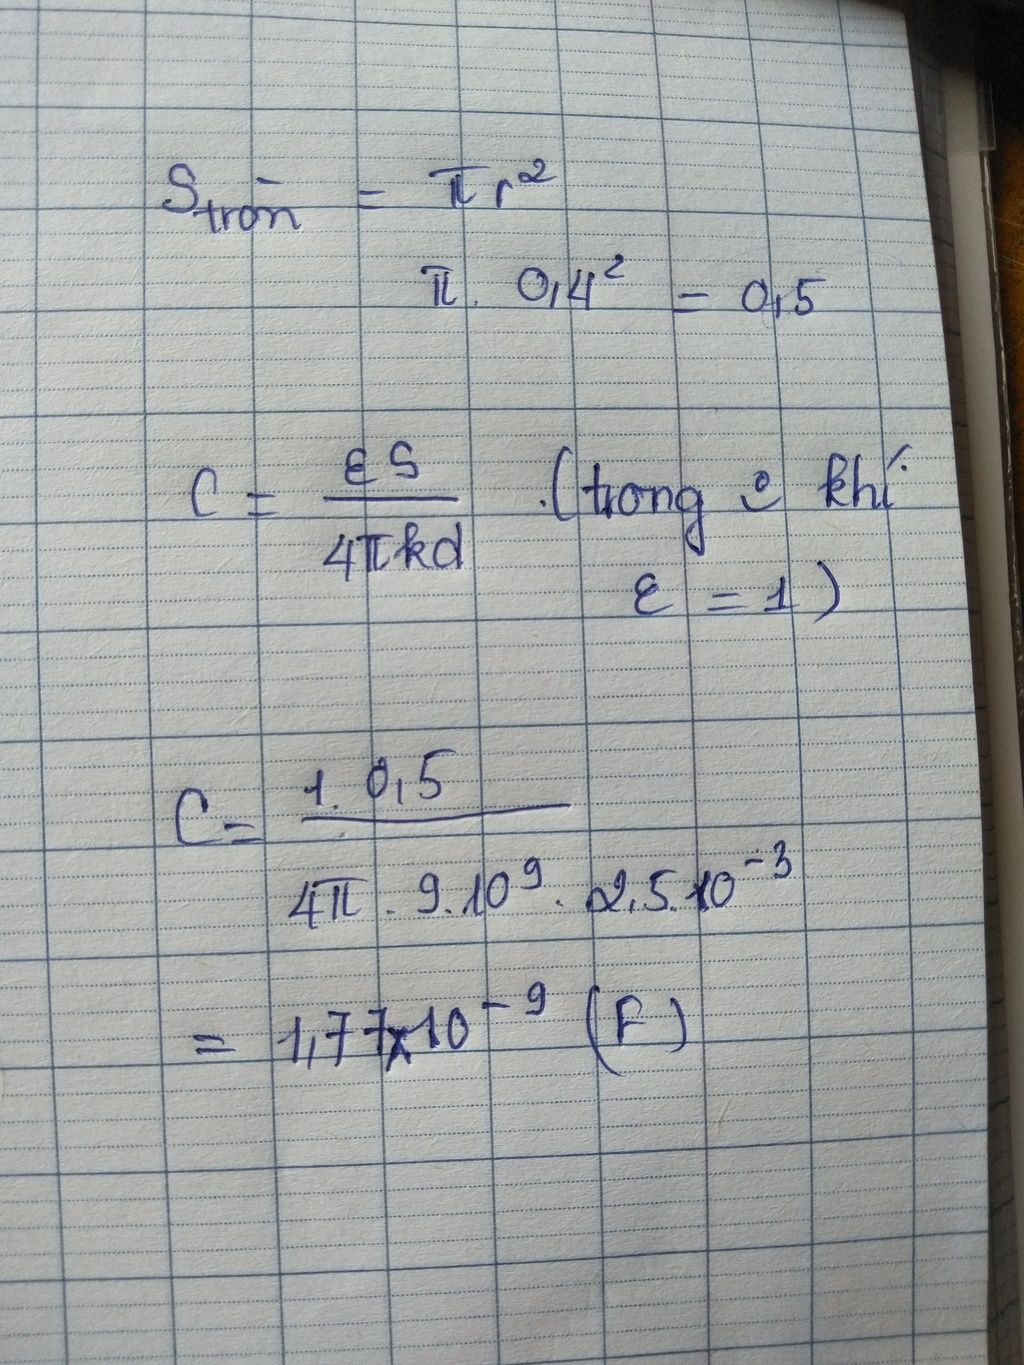 S tròn = πr²
π. 0,4² = 0,5
C = εS / 4πkd (trong khí
ε = 1)
C = 1. 0,5 / 4π . 9.10⁹ . 2,5.10⁻³
= 1,77x10⁻⁹ (F)